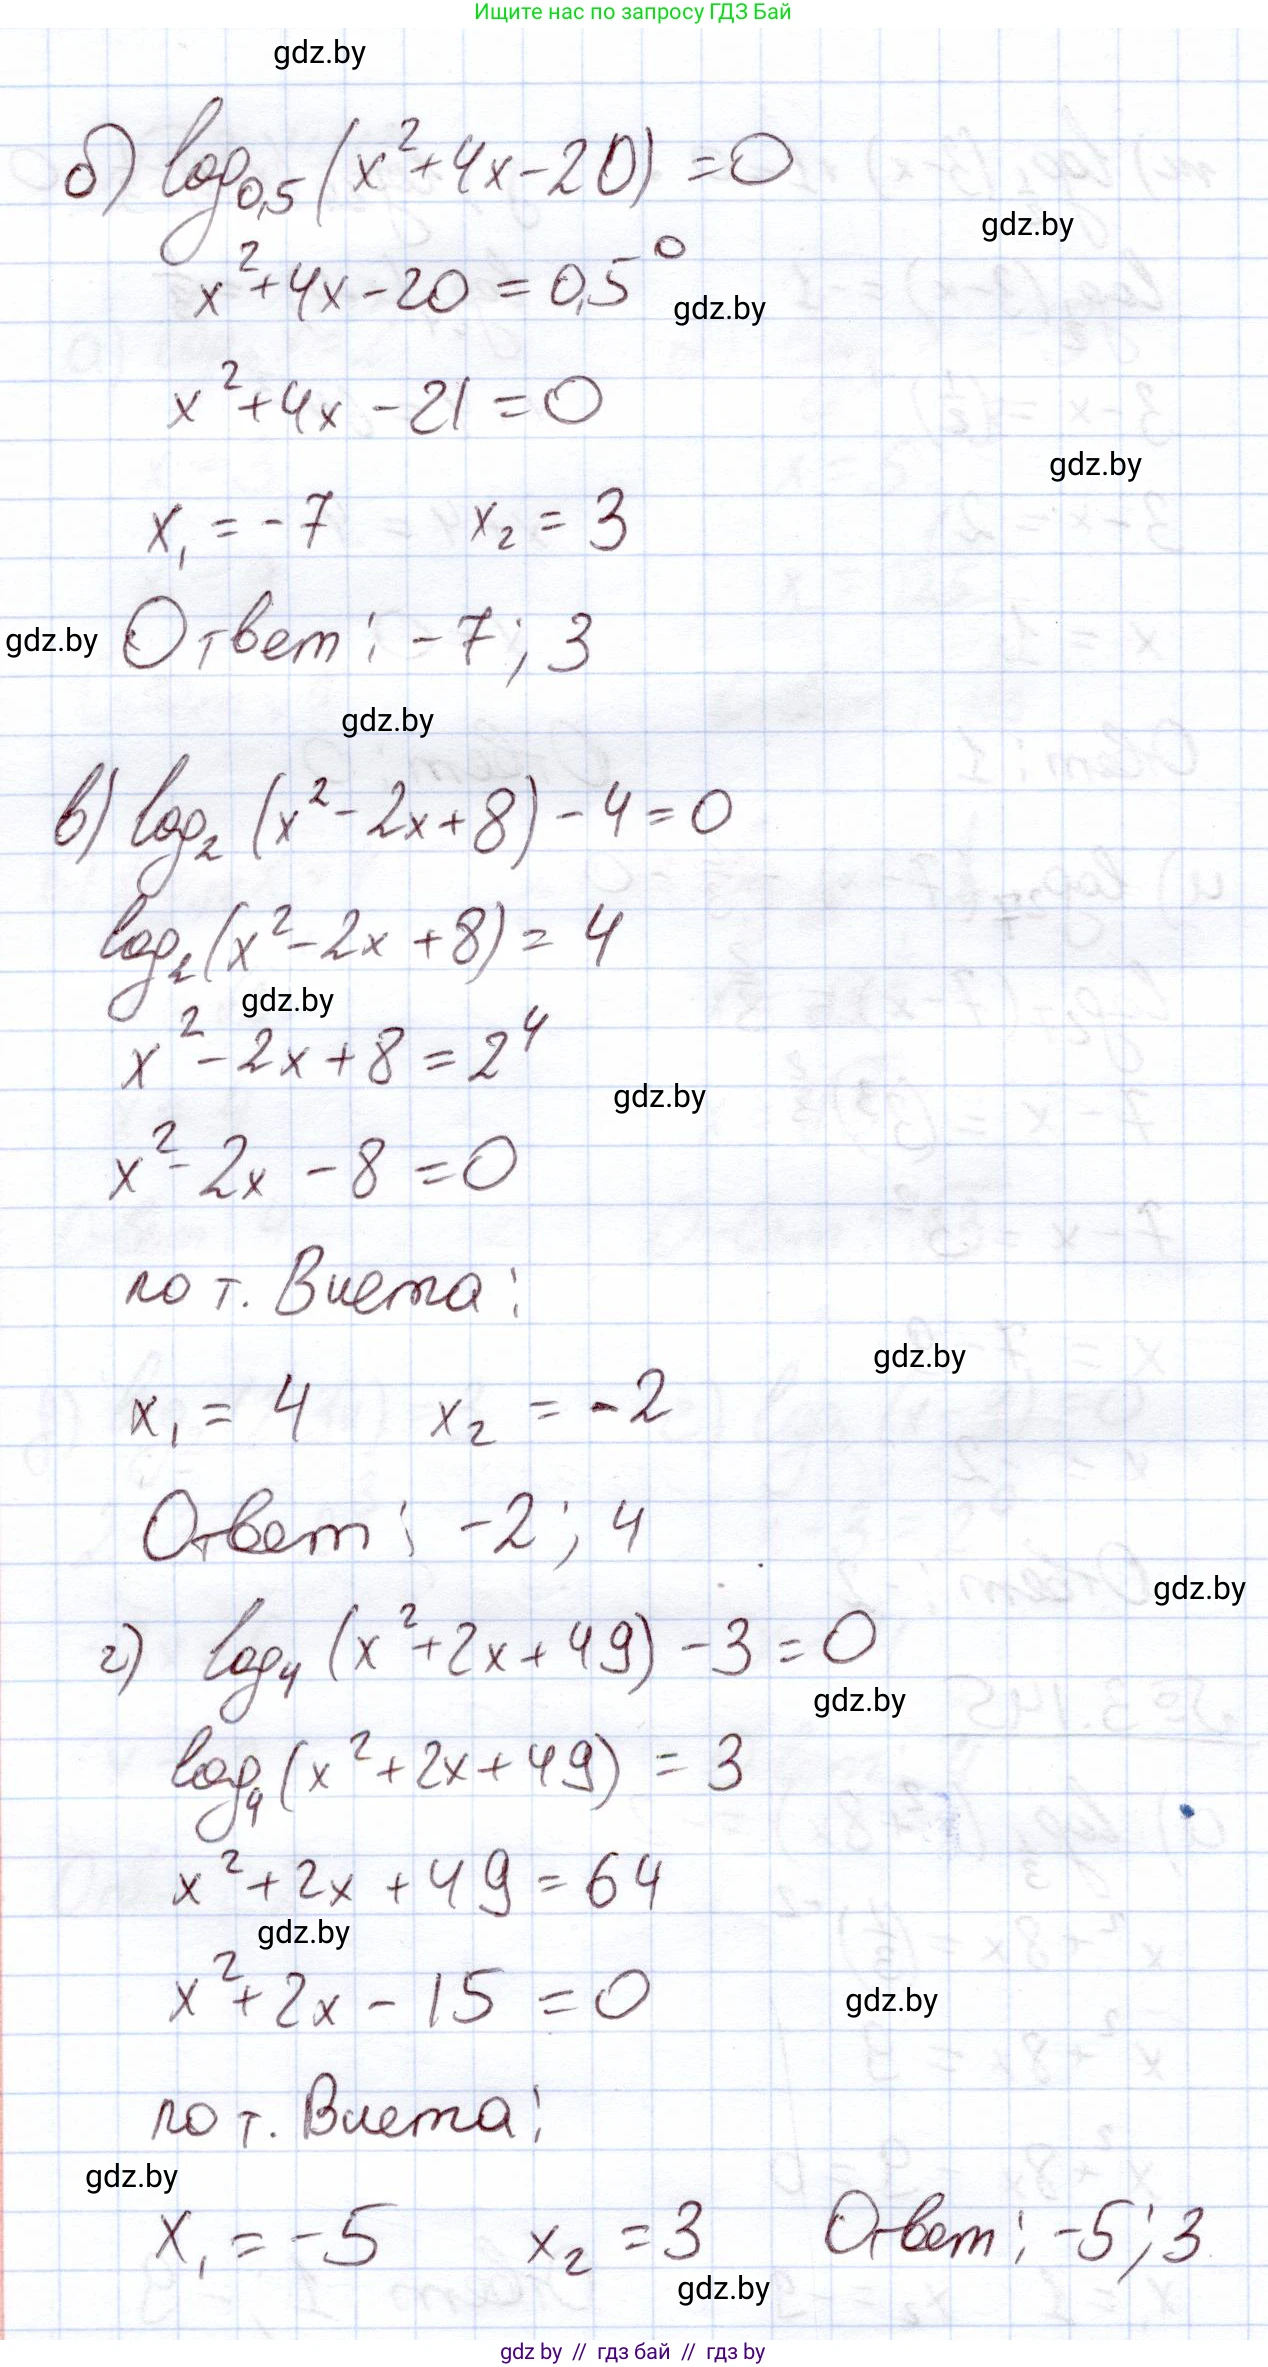 Ищите нас по запросу ГДЗ Бай
gdz.by
б) log₀,₅ (x² + 4x - 20) = 0
gdz.by
x² + 4x - 20 = 0,5⁰
gdz.by
x² + 4x - 21 = 0
gdz.by
x₁ = -7 x₂ = 3
gdz.by Ответ: -7; 3
gdz.by
в) log₂ (x² - 2x + 8) - 4 = 0
log₂ (x² - 2x + 8) = 4
gdz.by
x² - 2x + 8 = 2⁴
gdz.by
x² - 2x - 8 = 0
по т. Виета:
gdz.by
x₁ = 4 x₂ = -2
Ответ: -2; 4
gdz.by
г) log₄ (x² + 2x + 49) - 3 = 0
gdz.by
log₄ (x² + 2x + 49) = 3
x² + 2x + 49 = 64
gdz.by
x² + 2x - 15 = 0
gdz.by
по т. Виета:
gdz.by
x₁ = -5 x₂ = 3 Ответ: -5; 3
gdz.by
gdz by // гдз бай // гдз by